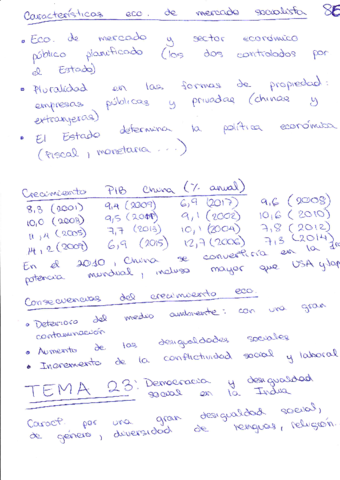 Características eco. de mercado socialista
• Eco. de mercado y sector económico
público planificado (los dos controlados por
el Estado)
• Pluralidad en las formas de propiedad:
empresas públicas y privadas (chinas y
extranjeras)
• El Estado determina la política económica
(fiscal, monetaria ...)
Crecimiento PIB China (% anual)
8,3 (2001) 9,4 (2009) 6,9 (2017) 9,6 (2008)
10,0 (2003) 9,5 (2011) 9,1 (2002) 10,6 (2010)
11,4 (2005) 7,7 (2013) 10,1 (2004) 7,8 (2012)
14,2 (2007) 6,9 (2015) 12,7 (2006) 7,3 (2014)
En el 2010, China se convertiría en la
potencia mundial, incluso mayor que USA y
Consecuencias del crecimiento eco.
• Deterioro del medio ambiente: con una gran
contaminación
• Aumento de las desigualdades sociales
• Incremento de la conflictividad social y laboral
TEMA 23: Democracia y desigualdad
social en la India
Caract. por una gran desigualdad social,
de género, diversidad de lenguas, religión